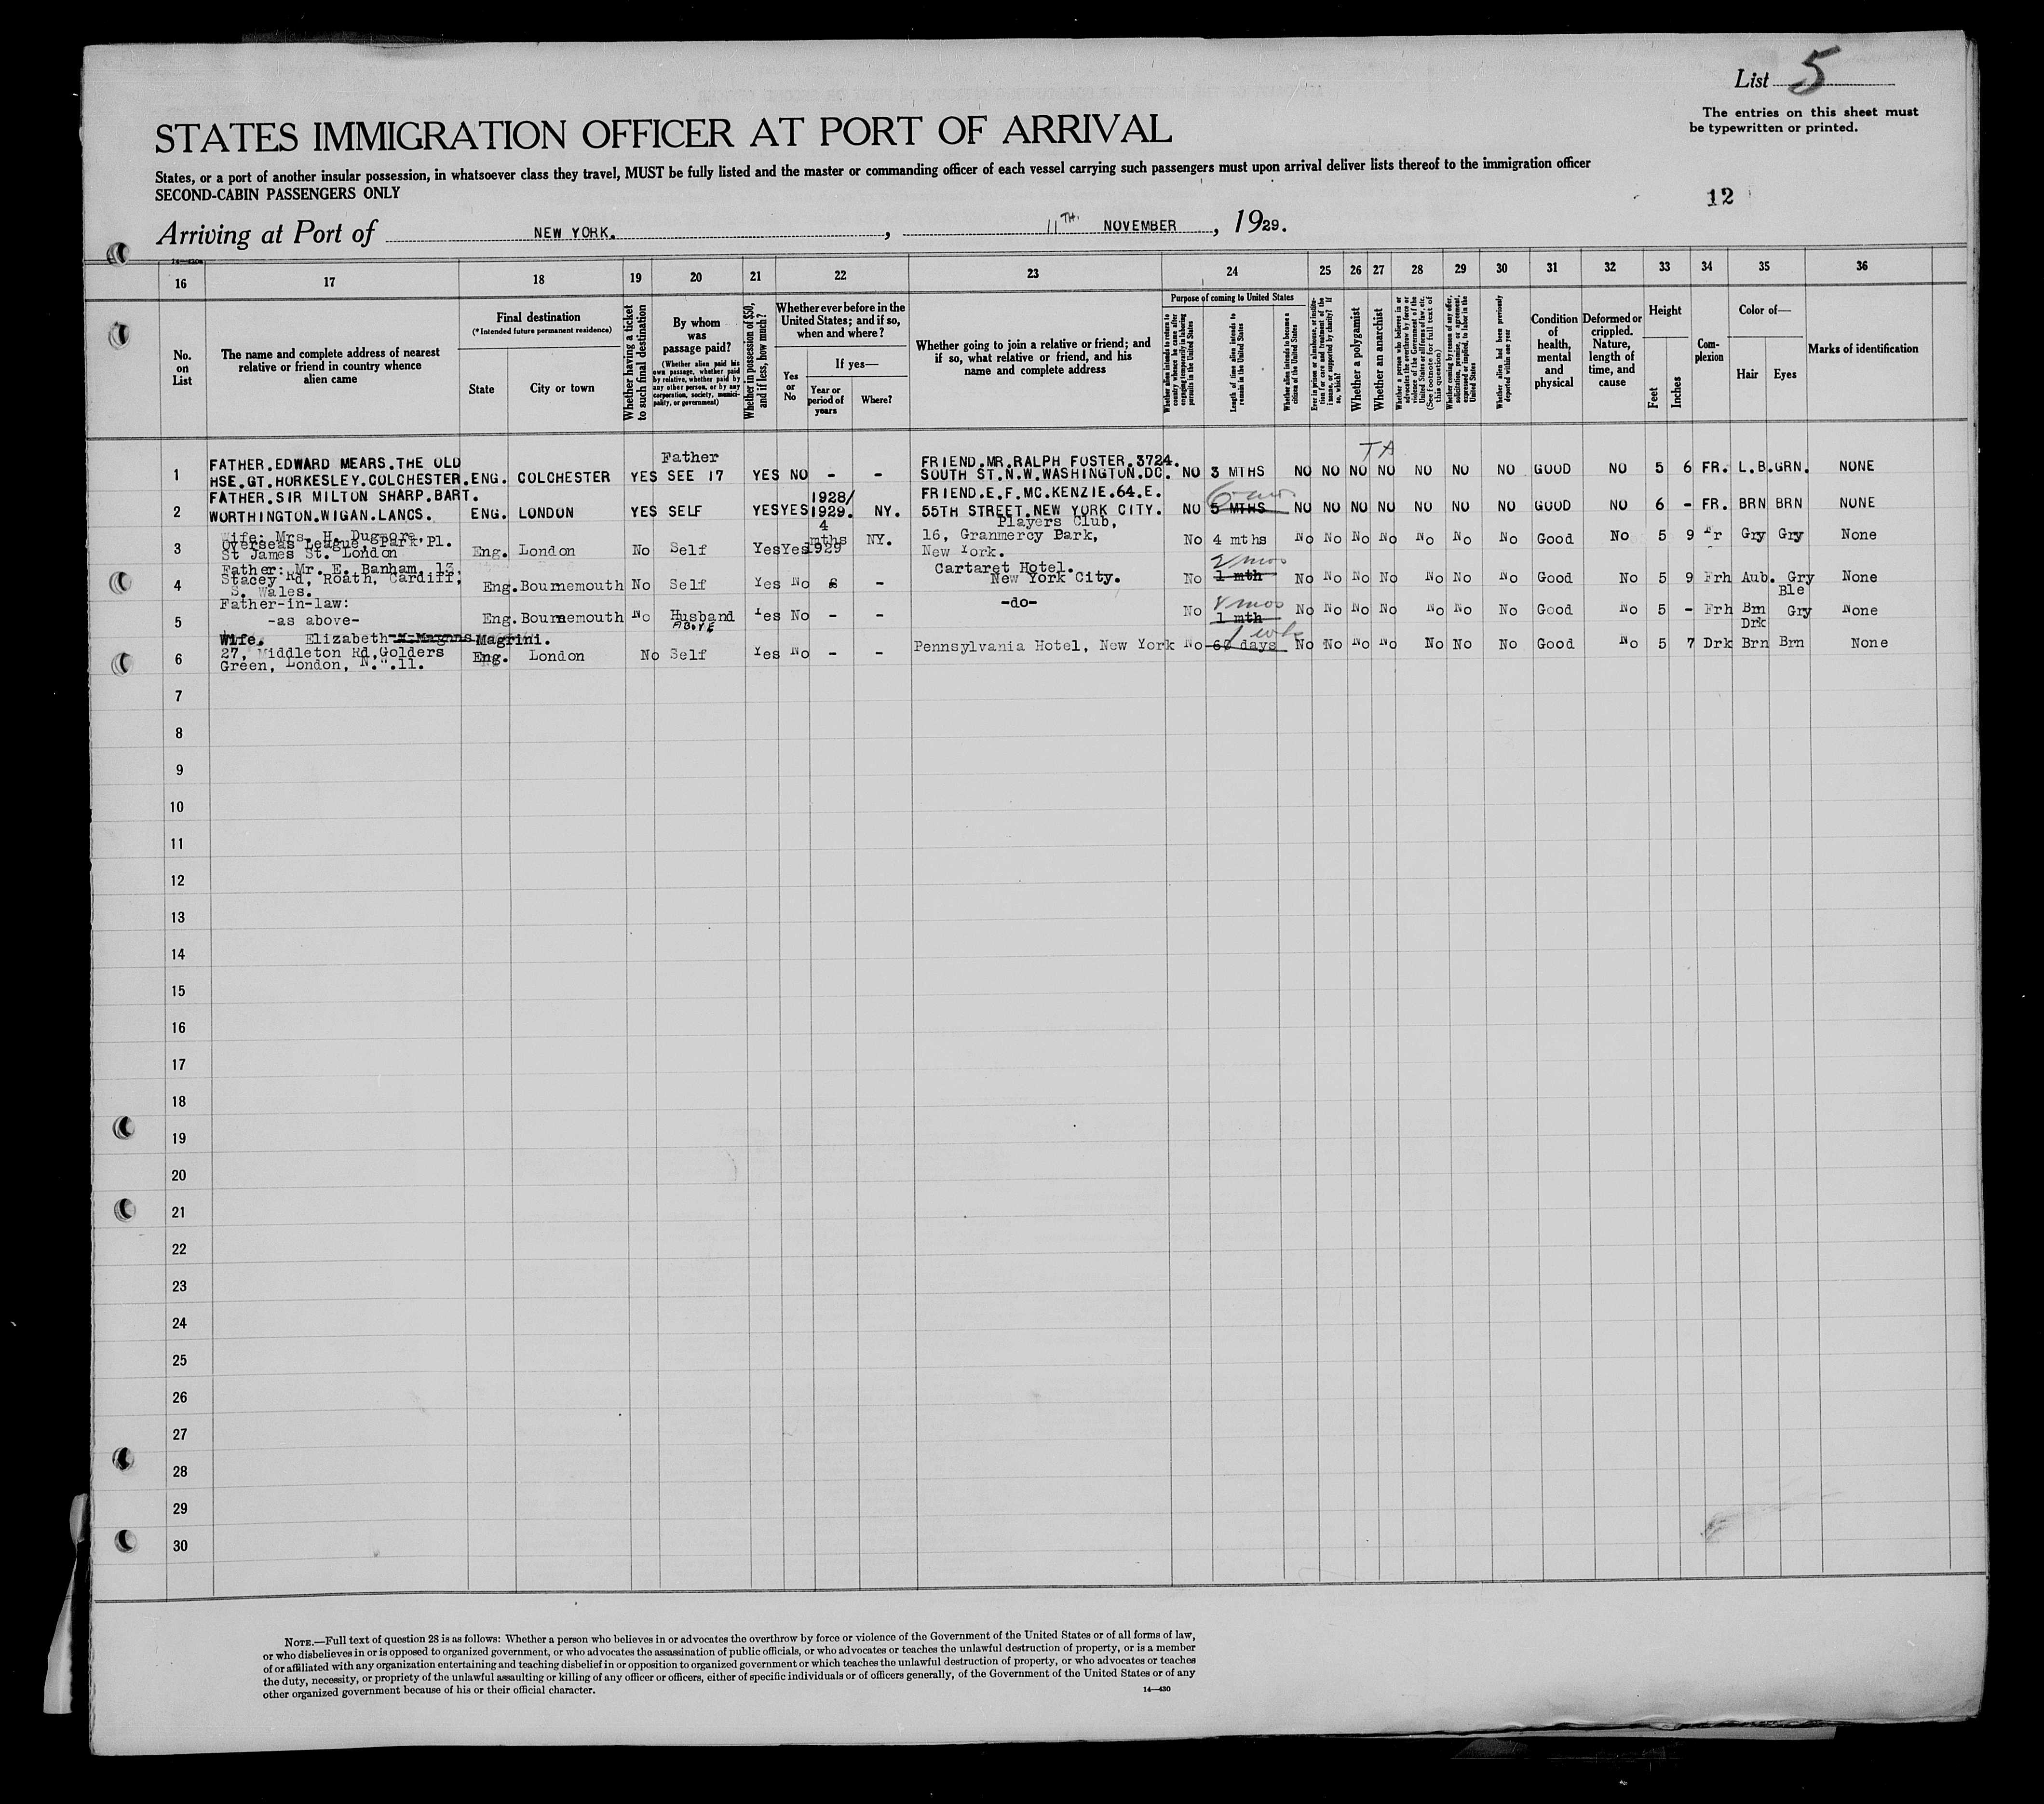 List 5
The entries on this sheet must
be typewritten or printed.
STATES IMMIGRATION OFFICER AT PORT OF ARRIVAL
States, or a port of another insular possession, in whatsoever class they travel, MUST be fully listed and the master or commanding officer of each vessel carrying such passengers must upon arrival deliver lists thereof to the immigration officer
SECOND-CABIN PASSENGERS ONLY
12
Arriving at Port of NEW YORK. , 11TH. NOVEMBER , 1929.
16 17 18 19 20 21 22 23 24 25 26 27 28 29 30 31 32 33 34 35 36
No. on List
The name and complete address of nearest relative or friend in country whence alien came
Final destination
(*Intended future permanent residence)
State
City or town
Whether having a ticket to such final destination
By whom was passage paid?
(Whether alien paid his own passage, whether paid by relative, whether paid by any other person, or by any corporation, society, municipality, or government)
Whether in possession of $50, and if less, how much?
Whether ever before in the United States; and if so, when and where?
Yes or No
If yes—
Year or period of years
Where?
Whether going to join a relative or friend; and if so, what relative or friend, and his name and complete address
Purpose of coming to United States
Whether alien intends to return to country whence he came after engaging temporarily in laboring pursuits in the United States
Length of time alien intends to remain in the United States
Whether alien intends to become a citizen of the United States
Ever in prison or almshouse, or institution for care and treatment of the insane, or supported by charity? If so, which?
Whether a polygamist
Whether an anarchist
Whether a person who believes in or advocates the overthrow by force or violence of the Government of the United States or all forms of law, etc. (See footnote for full text of this question)
Whether coming by reason of any offer, solicitation, promise, or agreement, expressed or implied, to labor in the United States
Whether alien had been previously deported within one year
Condition of health, mental and physical
Deformed or crippled. Nature, length of time, and cause
Height
Feet
Inches
Complexion
Color of—
Hair
Eyes
Marks of identification
TA
1 FATHER.EDWARD MEARS.THE OLD HSE.GT.HORKESLEY.COLCHESTER. ENG. COLCHESTER YES Father SEE 17 YES NO - - FRIEND.MR.RALPH FOSTER.3724. SOUTH ST.N.W.WASHINGTON.DC. NO 3 MTHS NO NO NO NO NO NO NO GOOD NO 5 6 FR. L.B. GRN. NONE
2 FATHER.SIR MILTON SHARP.BART. WORTHINGTON.WIGAN.LANCS. ENG. LONDON YES SELF YES YES 1928/1929. NY. FRIEND.E.F.MC.KENZIE.64.E. 55TH STREET.NEW YORK CITY. NO 6 mos 5 MTHS NO NO NO NO NO NO NO GOOD NO 6 - FR. BRN BRN NONE
3 Wife: Mrs. H. Dugmore, Overseas League, Park Pl. St James St. London Eng. London No Self Yes Yes 4 mths 1929 NY. Players Club, 16, Granmercy Park, New York. No 4 mths No No No No No No No Good No 5 9 Fr Gry Gry None
4 Father: Mr. E. Banham, 13, Stacey Rd, Roath, Cardiff, S. Wales. Eng. Bournemouth No Self Yes No - Cartaret Hotel. New York City. No 2 mos 1 mth No No No No No No No Good No 5 9 Frh Aub. Gry None
5 Father-in-law: -as above- Eng. Bournemouth No Husband ABOVE Yes No - - -do- No mos 1 mth No No No No No No No Good No 5 - Frh Brn Ble Gry None
6 Wife. Elizabeth Magrini. 27, Middleton Rd, Golders Green, London, N.W.11. Eng. London No Self Yes No - - Pennsylvania Hotel, New York No 1 wk days No No No No No No No Good No 5 7 Drk Drk Brn Brn None
7
8
9
10
11
12
13
14
15
16
17
18
19
20
21
22
23
24
25
26
27
28
29
30
NOTE.—Full text of question 28 is as follows: Whether a person who believes in or advocates the overthrow by force or violence of the Government of the United States or of all forms of law,
or who disbelieves in or is opposed to organized government, or who advocates the assassination of public officials, or who advocates or teaches the unlawful destruction of property, or is a member
of or affiliated with any organization entertaining and teaching disbelief in or opposition to organized government or which teaches the unlawful destruction of property, or who advocates or teaches
the duty, necessity, or propriety of the unlawful assaulting or killing of any officer or officers, either of specific individuals or of officers generally, of the Government of the United States or of any
other organized government because of his or their official character.
14—430